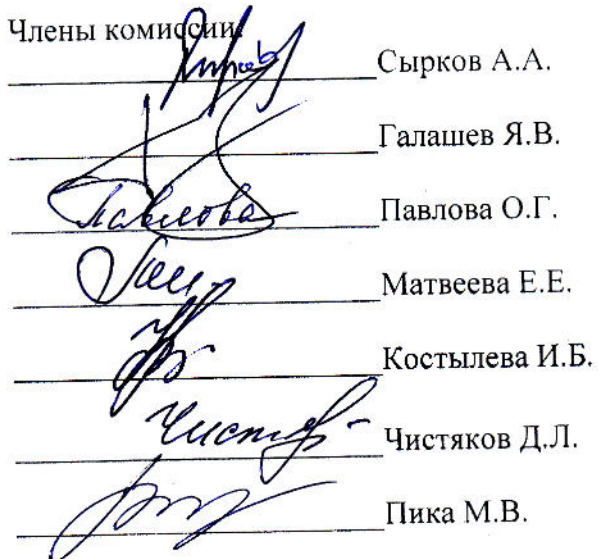 Члены комиссии:
Сырков А.А.
Галашев Я.В.
Павлова Павлова О.Г.
Матвеева Е.Е.
Костылева И.Б.
Чистяков Д.Л.
Пика М.В.